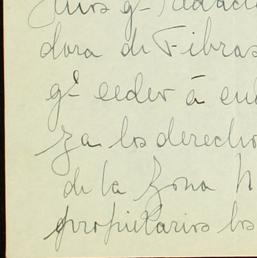 dora de Fibras
qe ceder á en
za los derecho
de la Zona N
propietarios los